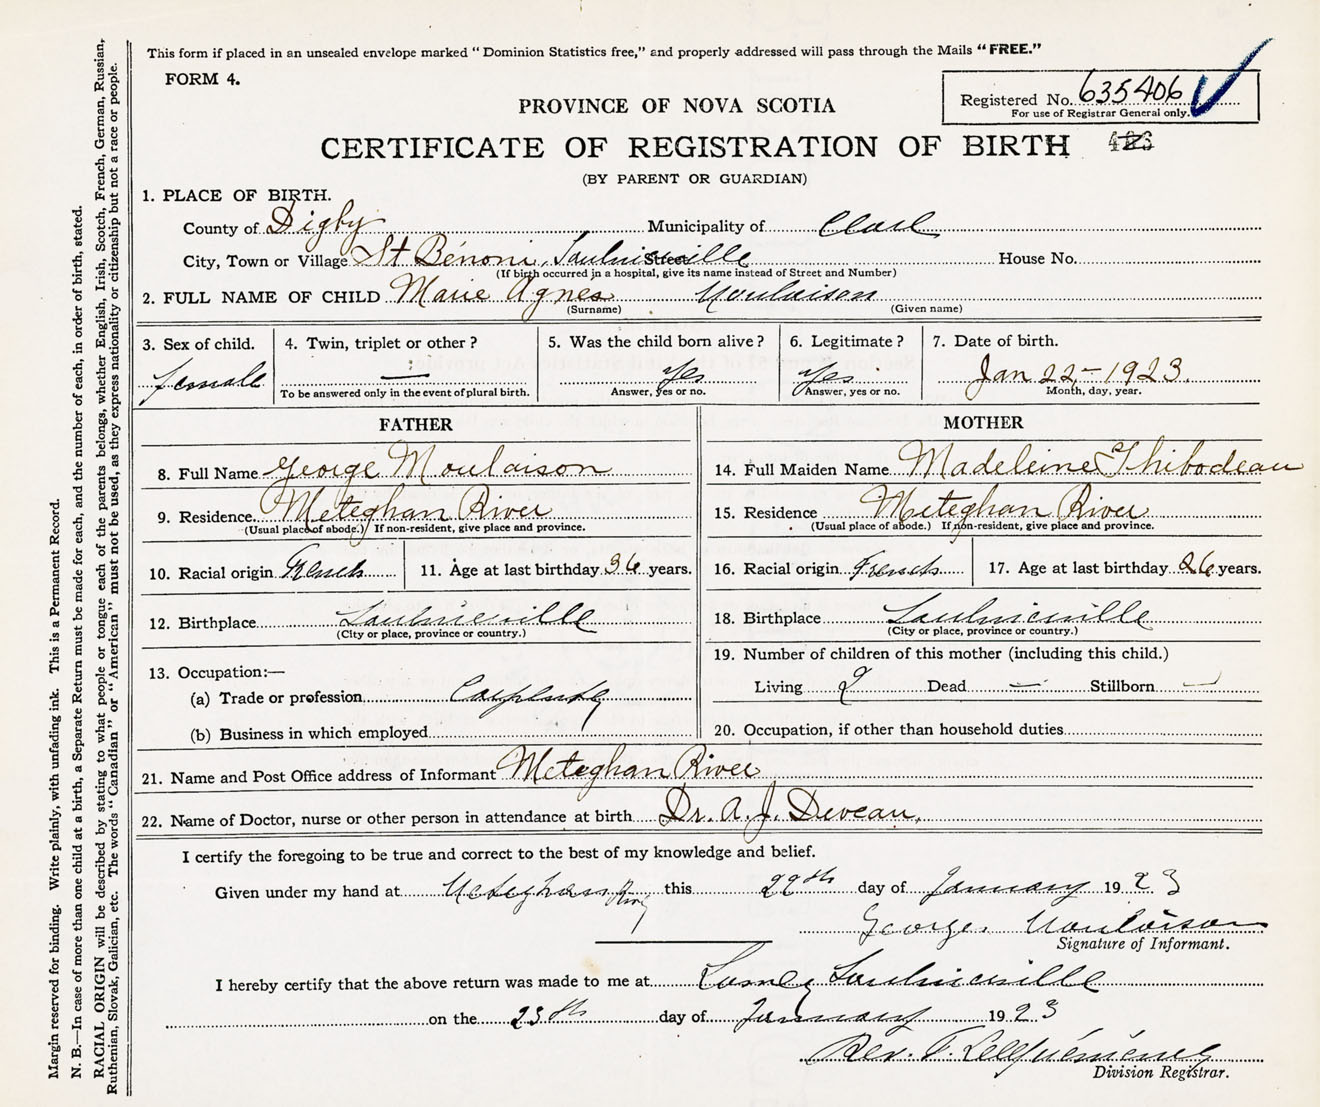 This form if placed in an unsealed envelope marked "Dominion Statistics free," and properly addressed will pass through the Mails "FREE."
FORM 4.
Registered No. 635406
For use of Registrar General only.
PROVINCE OF NOVA SCOTIA
CERTIFICATE OF REGISTRATION OF BIRTH
(BY PARENT OR GUARDIAN)
1. PLACE OF BIRTH.
County of Digby Municipality of Clare
City, Town or Village St Bénoni, Saulnierville Street House No.
(If birth occurred in a hospital, give its name instead of Street and Number)
2. FULL NAME OF CHILD Marie Agnes Moulaison
(Surname) (Given name)
3. Sex of child. 4. Twin, triplet or other? 5. Was the child born alive? 6. Legitimate? 7. Date of birth.
female — Yes Yes Jan 22 – 1923.
To be answered only in the event of plural birth. Answer, yes or no. Answer, yes or no. Month, day, year.
FATHER
8. Full Name George Moulaison
9. Residence Meteghan River
(Usual place of abode.) If non-resident, give place and province.
10. Racial origin French 11. Age at last birthday 36 years.
12. Birthplace Saulnierville
(City or place, province or country.)
13. Occupation:—
(a) Trade or profession Carpenter
(b) Business in which employed
MOTHER
14. Full Maiden Name Madeleine Thibodeau
15. Residence Meteghan River
(Usual place of abode.) If non-resident, give place and province.
16. Racial origin French 17. Age at last birthday 26 years.
18. Birthplace Saulnierville
(City or place, province or country.)
19. Number of children of this mother (including this child.)
Living 2 Dead — Stillborn —
20. Occupation, if other than household duties
21. Name and Post Office address of Informant Meteghan River
22. Name of Doctor, nurse or other person in attendance at birth Dr. A. J. Deveau.
I certify the foregoing to be true and correct to the best of my knowledge and belief.
Given under my hand at Meteghan Riv this 22th day of January 1923
George Moulaison
Signature of Informant.
I hereby certify that the above return was made to me at Saulnierville
on the 23th day of January 1923
Rev.
Division Registrar.
Margin reserved for binding. Write plainly, with unfading ink. This is a Permanent Record.
N. B.—In case of more than one child at a birth, a Separate Return must be made for each, and the number of each, in order of birth, stated.
RACIAL ORIGIN will be described by stating to what people or tongue each of the parents belongs, whether English, Irish, Scotch, French, German, Russian,
Ruthenian, Slovak, Galician, etc. The words "Canadian" or "American" must not be used, as they express nationality or citizenship but not a race or people.